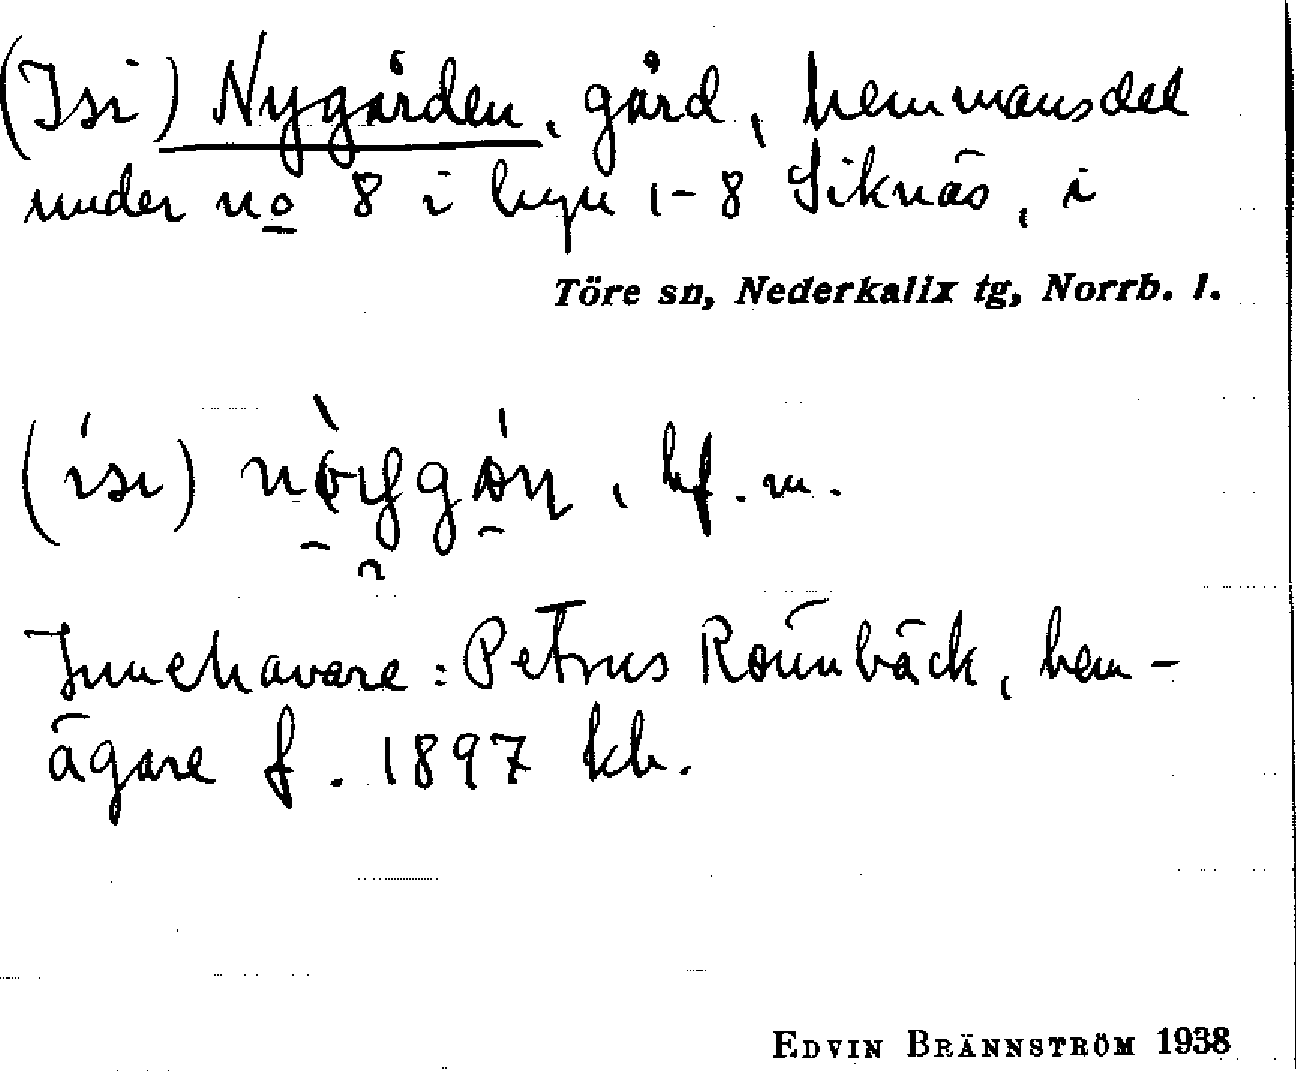 (Isi) Nygården, gård, hemmansdel
under no 8 i byn 1-8 Siknäs, i
Töre sn, Nederkalix tg, Norrb. l.
(isi) , bf. m.
Innehavare: Petrus Rönnbäck, hem-
ägare f. 1897 kb.
EDVIN BRÄNNSTRÖM 1938